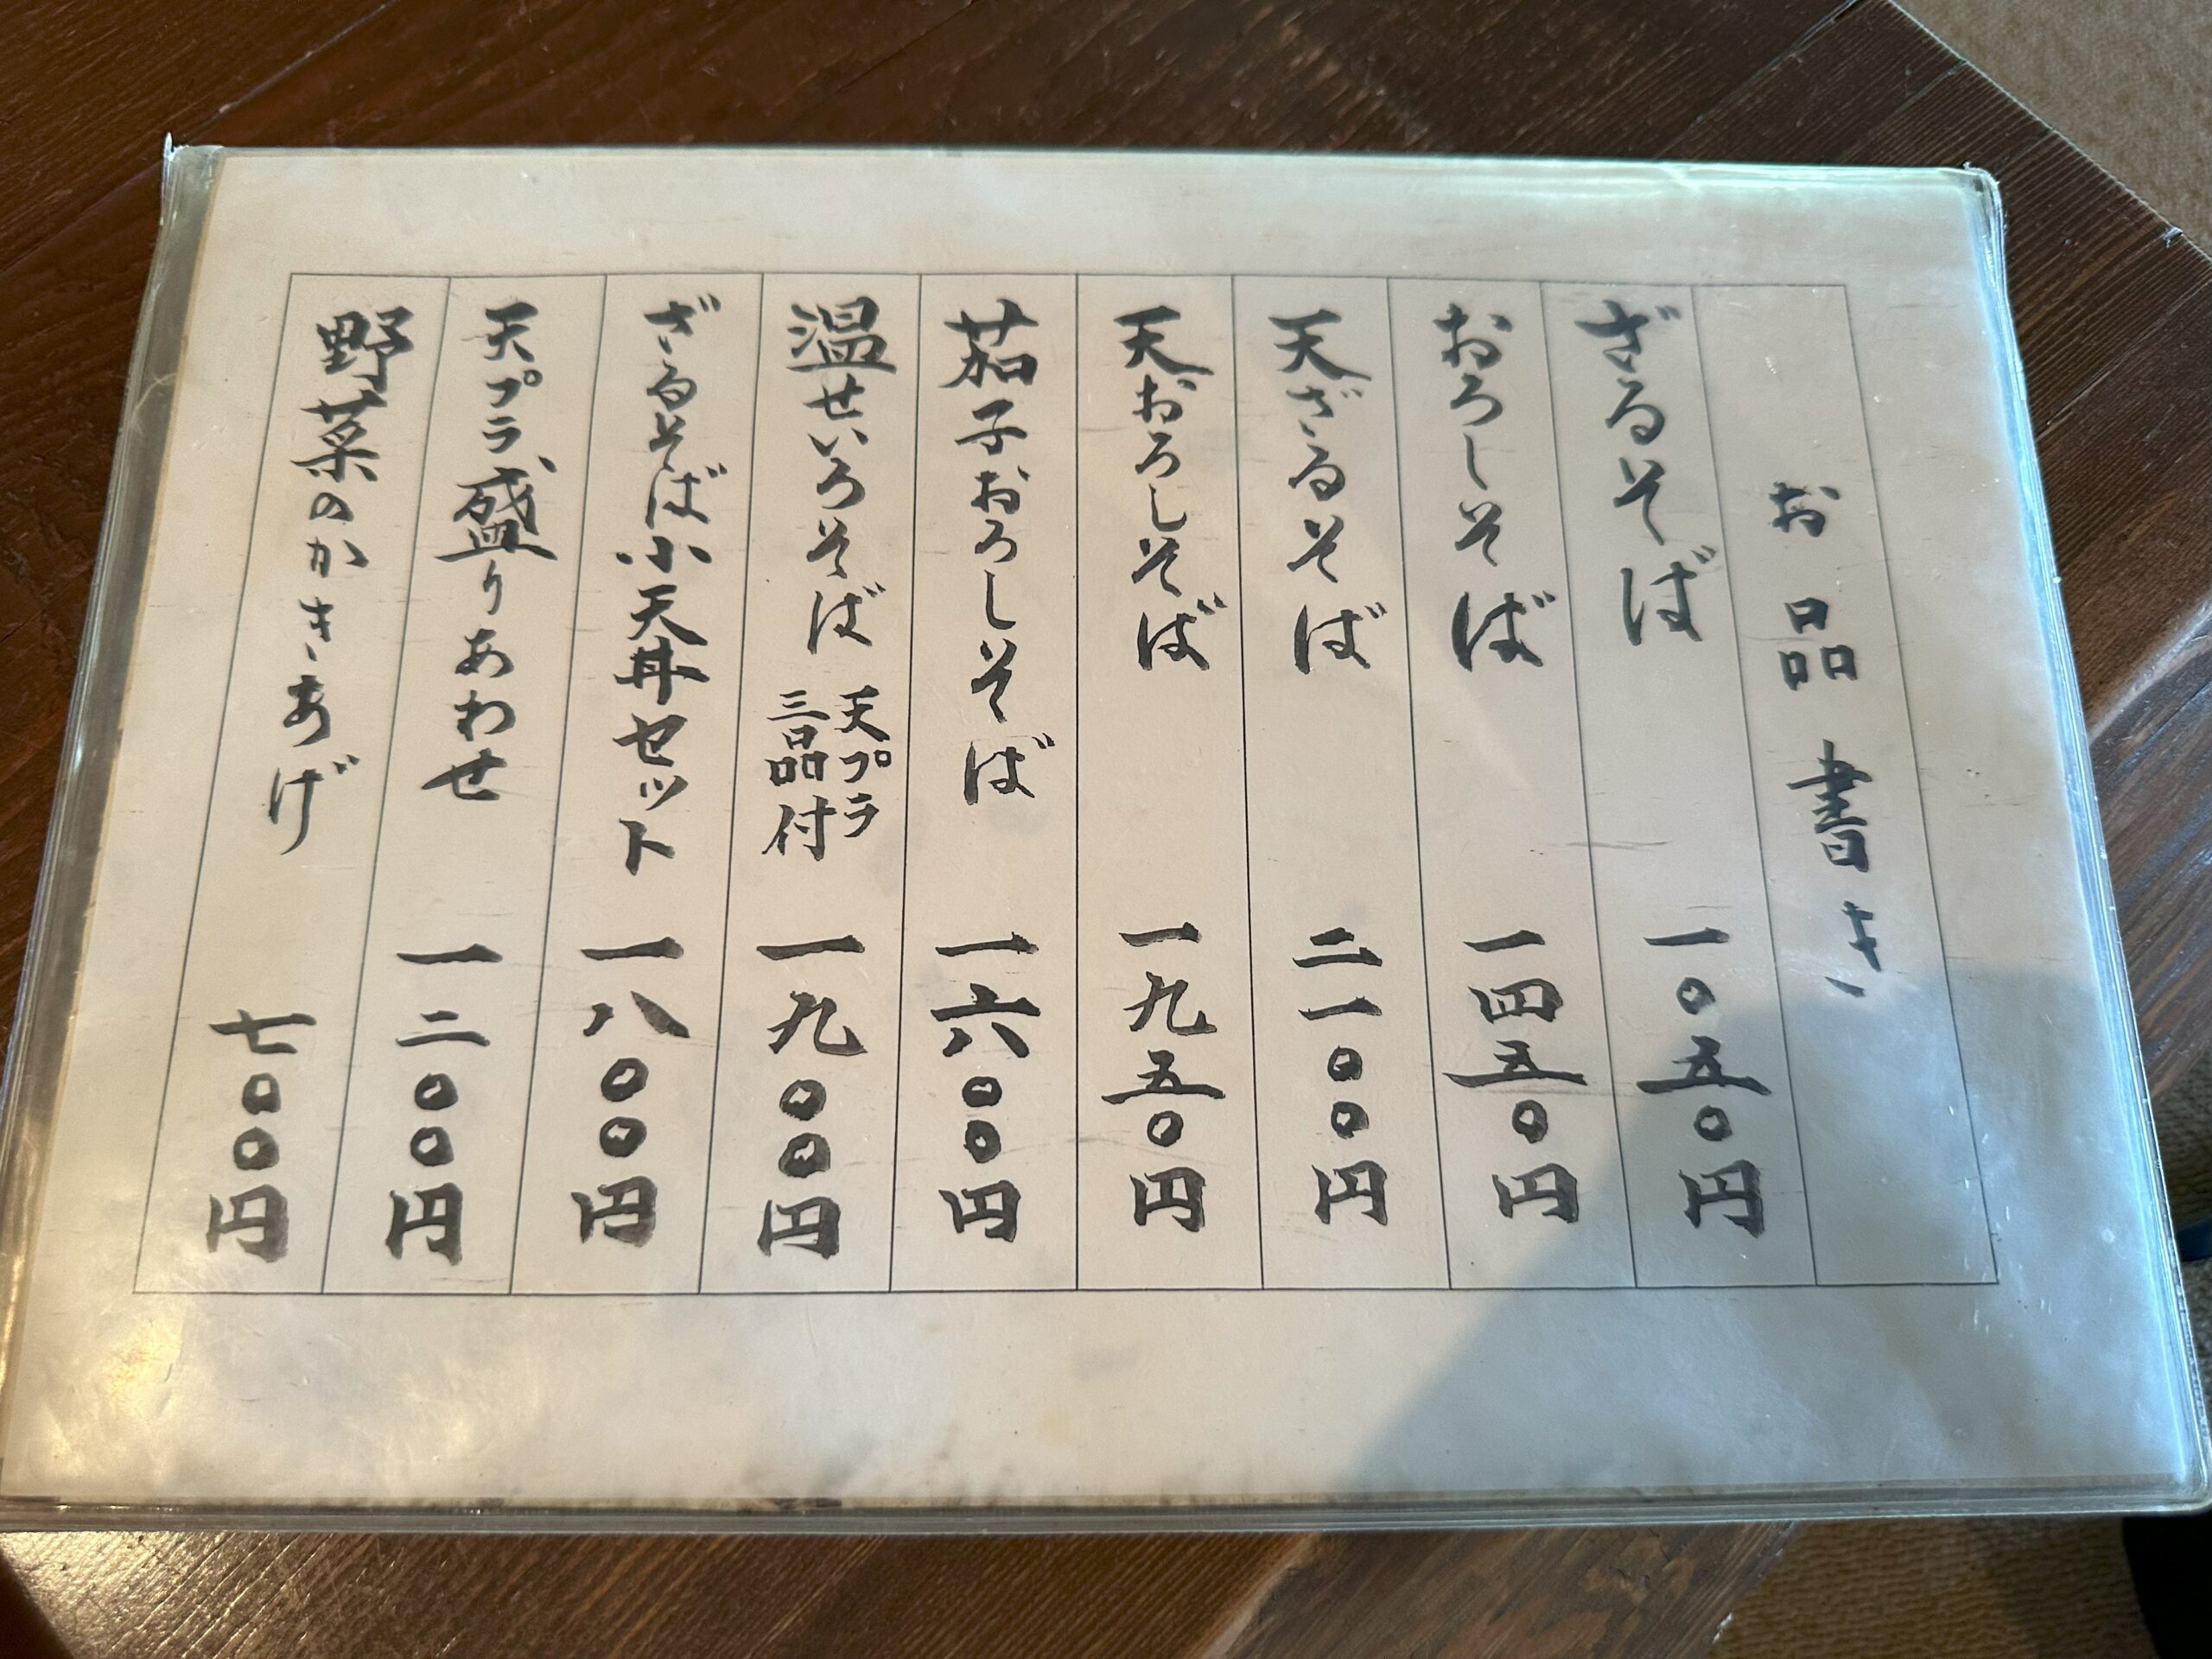 お品書き
ざるそば 一〇五〇円
おろしそば 一四五〇円
天ざるそば 二一〇〇円
天おろしそば 一九五〇円
茄子おろしそば 一六〇〇円
温せいろそば 天プラ三品付 一九〇〇円
ざるそば小天丼セット 一八〇〇円
天プラ盛りあわせ 一二〇〇円
野菜のかきあげ 七〇〇円